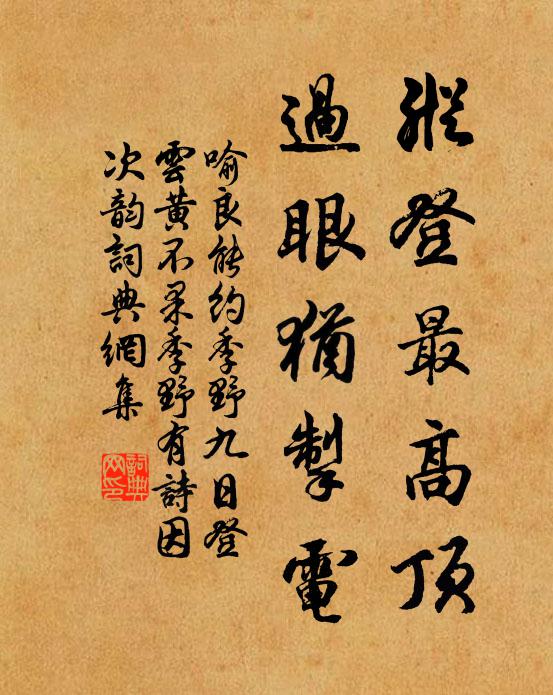 縱登最高頂
過眼猶掣電
喻良能約季野九日登
雲黃不果季野有詩因
次韵詞典網集
詞典網印